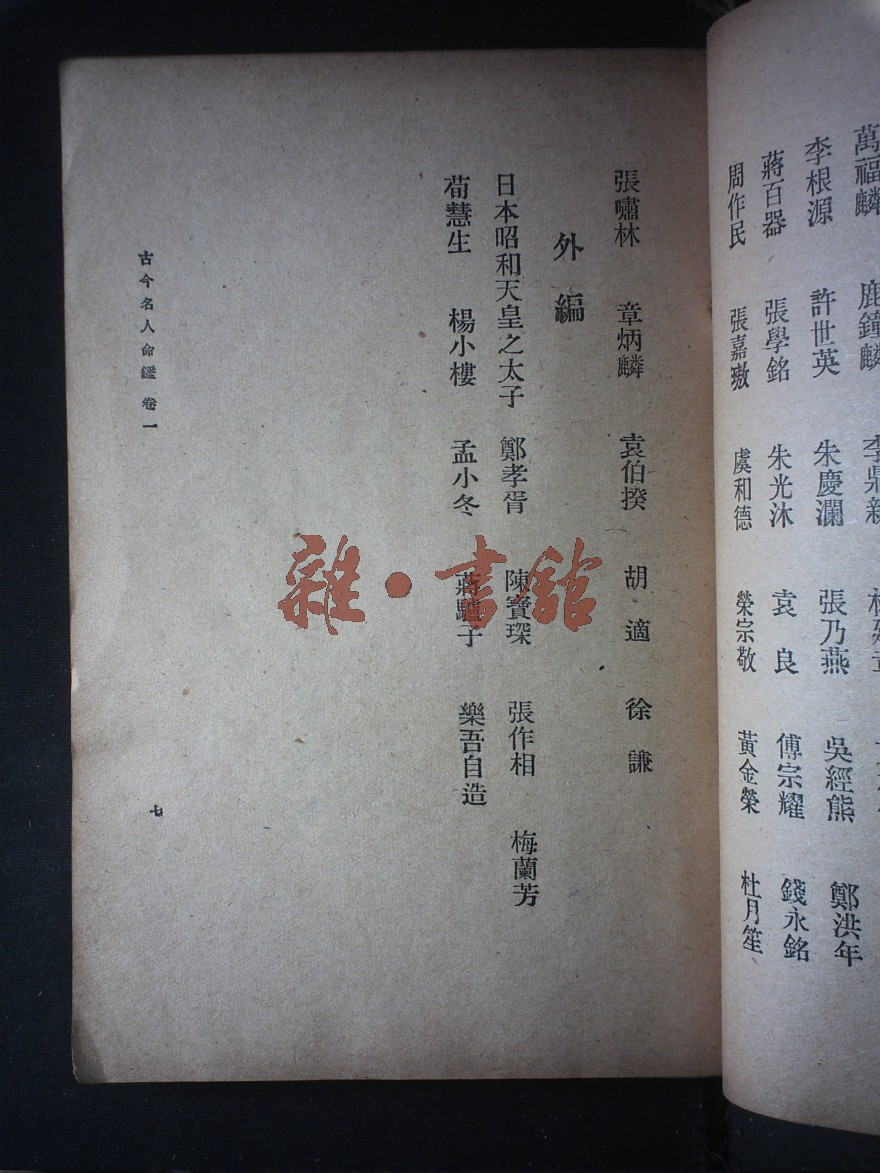 萬福麟 鹿鐘麟
李根源 許世英 朱慶瀾 張乃燕 吳經熊 鄭洪年
蔣百器 張學銘 朱光沐 袁良 傅宗耀 錢永銘
周作民 張嘉璈 虞和德 榮宗敬 黃金榮 杜月笙
張嘯林 章炳麟 袁伯揆 胡適 徐謙
外編
日本昭和天皇之太子 鄭孝胥 陳寶琛 張作相 梅蘭芳
荀慧生 楊小樓 孟小冬 蔣驢子 樂吾自造
古今名人命鑑 卷一
七
雜·書館